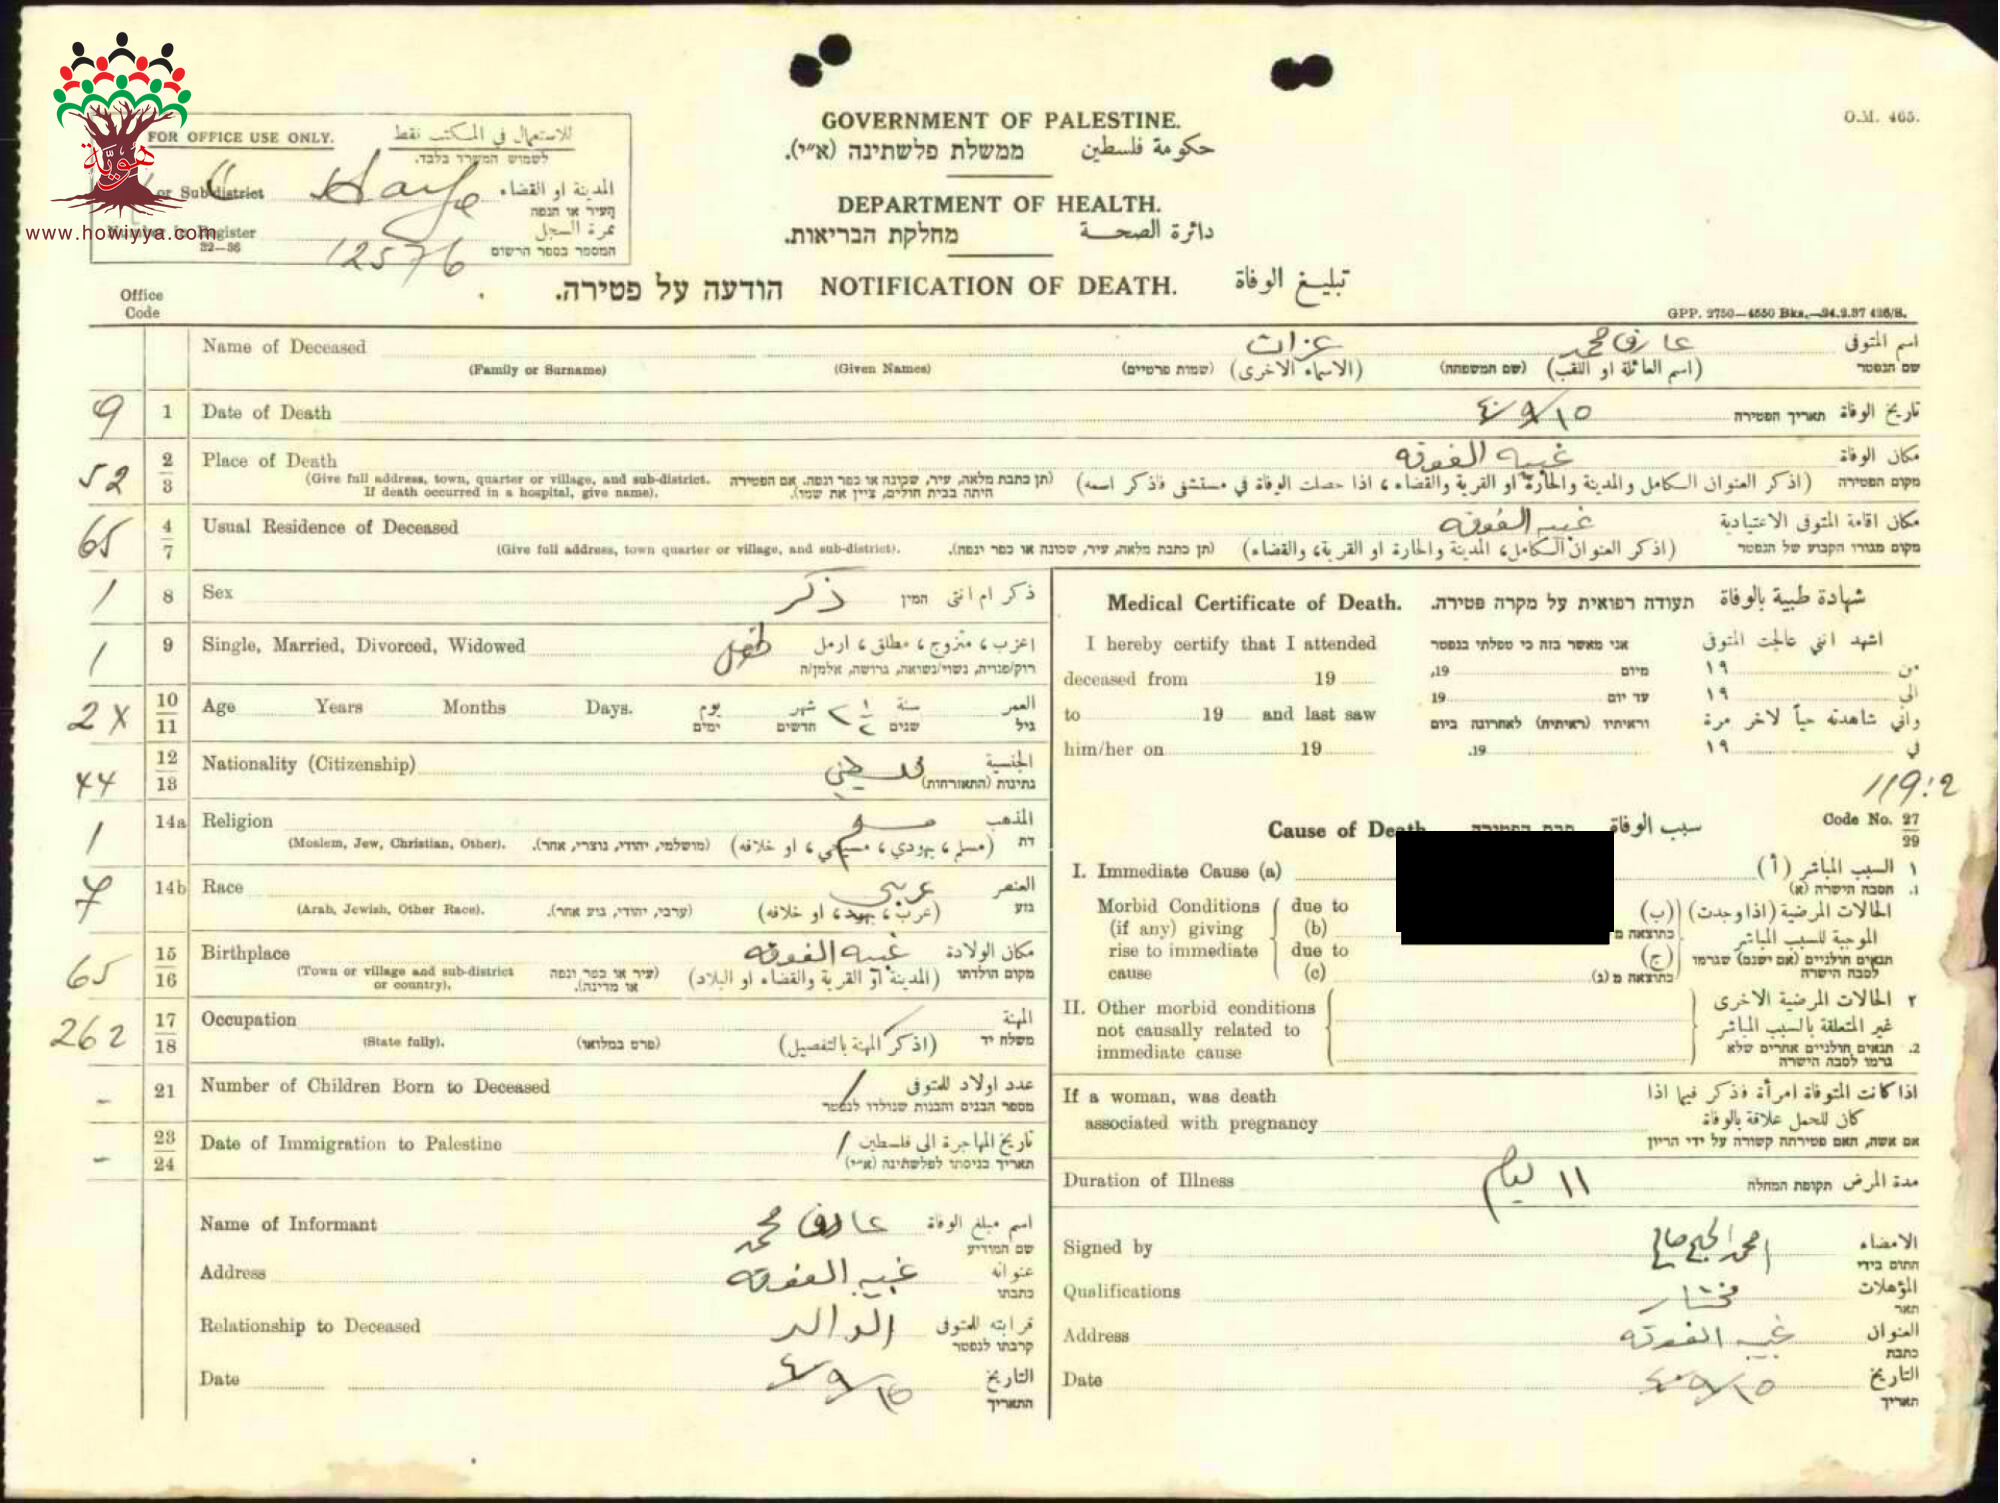 هوية
www.howiyya.com
FOR OFFICE USE ONLY. للاستعمال في المكتب فقط
לשמוש המשרד בלבד.
or Sub-district Haifa المدينة او القضاء
העיר או הנפה
Number in Register 12576 نمرة السجل
22—26 המספר בספר הרשום
O.M. 465.
GOVERNMENT OF PALESTINE.
ממשלת פלשתינה (א״י). حكومة فلسطين
DEPARTMENT OF HEALTH.
מחלקת הבריאות. دائرة الصحة
הודעה על פטירה. NOTIFICATION OF DEATH. تبليغ الوفاة
Office
Code
GPP. 2750—4550 Bks.—24.2.37 426/S.
Name of Deceased عزات عارف محمد اسم المتوفى
(Family or Surname) (Given Names) (שמות פרטיים) (الاسماء الاخرى) (שם המשפחה) (اسم العائلة او اللقب) שם הנפטר
9 1 Date of Death ١٥/٩/٤٠ תאריך הפטירה تاريخ الوفاة
52 2 Place of Death غبيه الفوقه مكان الوفاة
3 (Give full address, town, quarter or village, and sub-district. (תן כתבת מלאה, עיר, שכונה או כפר ונפה. אם הפטירה (اذكر العنوان الكامل والمدينة والحارة او القرية والقضاء ، اذا حصلت الوفاة في مستشفى فاذكر اسمه) מקום הפטירה
If death occurred in a hospital, give name). היתה בבית חולים, ציין את שמו).
65 4 Usual Residence of Deceased غبيه الفوقه مكان اقامة المتوفى الاعتيادية
7 (Give full address, town quarter or village, and sub-district). (תן כתבת מלאה, עיר, שכונה או כפר ונפה). (اذكر العنوان الكامل، المدينة والحارة او القرية، والقضاء) מקום מגורו הקבוע של הנפטר
1 8 Sex ذكر המין ذكر ام انثى
1 9 Single, Married, Divorced, Widowed طفل اعزب ، متزوج ، مطلق ، ارمل
רוק/פנויה, נשוי/נשואה, גרוש/ה, אלמן/ה
2X 10 Age Years Months Days. يوم شهر سنة العمر
11 ימים חדשים שנים גיל
44 12 Nationality (Citizenship) فلسطيني الجنسية
13 נתינות (התאזרחות)
1 14a Religion مسلم المذهب
(Moslem, Jew, Christian, Other). (מושלמי, יהודי, נוצרי, אחר). (مسلم ، يهودي ، مسيحي ، او خلافه) דת
7 14b Race عربي العنصر
(Arab, Jewish, Other Race). (ערבי, יהודי, גזע אחר). (عرب ، يهود ، او خلافه) גזע
65 15 Birthplace غبيه الفوقه مكان الولادة
16 (Town or village and sub-district (עיר או כפר ונפה (المدينة او القرية والقضاء او البلاد) מקום הולדתו
or country). או מדינה).
262 17 Occupation المهنة
18 (State fully). (פרט במלואו) (اذكر المهنة بالتفصيل) משלח יד
- 21 Number of Children Born to Deceased / عدد اولاد للمتوفى
מספר הבנים והבנות שנולדו לנפטר
- 23 Date of Immigration to Palestine / تاريخ المهاجرة الى فلسطين
24 תאריך כניסתו לפלשתינה (א״י)
Name of Informant عارف محمد اسم مبلغ الوفاة
שם המודיע
Address غبيه الفوقه عنوانه
כתבתו
Relationship to Deceased الوالد قرابته للمتوفى
קרבתו לנפטר
Date ١٥/٩/٤٠ التاريخ
התאריך
Medical Certificate of Death. תעודה רפואית על מקרה פטירה. شهادة طبية بالوفاة
I hereby certify that I attended אני מאשר בזה כי טפלתי בנפטר اشهد انني عالجت المتوفى
deceased from 19 מיום 19, من ١٩
to 19 and last saw עד יום 19 الى ١٩
וראיתיו (ראיתיה) לאחרונה ביום واني شاهدته حياً لآخر مرة
him/her on 19 19. في ١٩
119:2
Cause of Death سبب الوفاة Code No. 27
29
I. Immediate Cause (a) ١ السبب المباشر (أ)
1. הסבה הישרה (א)
Morbid Conditions due to الحالات المرضية (اذا وجدت) (ب)
(if any) giving (b) כתוצאה מ الموجبة للسبب المباشر
rise to immediate due to תנאים חולניים (אם ישנם) שגרמו (ج)
cause (c) כתוצאה מ (ג) לסבה הישרה
II. Other morbid conditions ٢ الحالات المرضية الاخرى
not causally related to غير المتعلقة بالسبب المباشر
immediate cause 2. תנאים חולניים אחרים שלא
גרמו לסבה הישרה
If a woman, was death اذا كانت المتوفاة امرأة فذكر فيما اذا
associated with pregnancy كان للحمل علاقة بالوفاة
אם אשה, האם פטירתה קשורה על ידי הריון
Duration of Illness ١١ يوم תקופת המחלה مدة المرض
Signed by الامضاء
חתום בידי
Qualifications مختار المؤهلات
תאר
Address غبيه الفوقه العنوان
כתבת
Date ١٥/٩/٤٠ التاريخ
תאריך